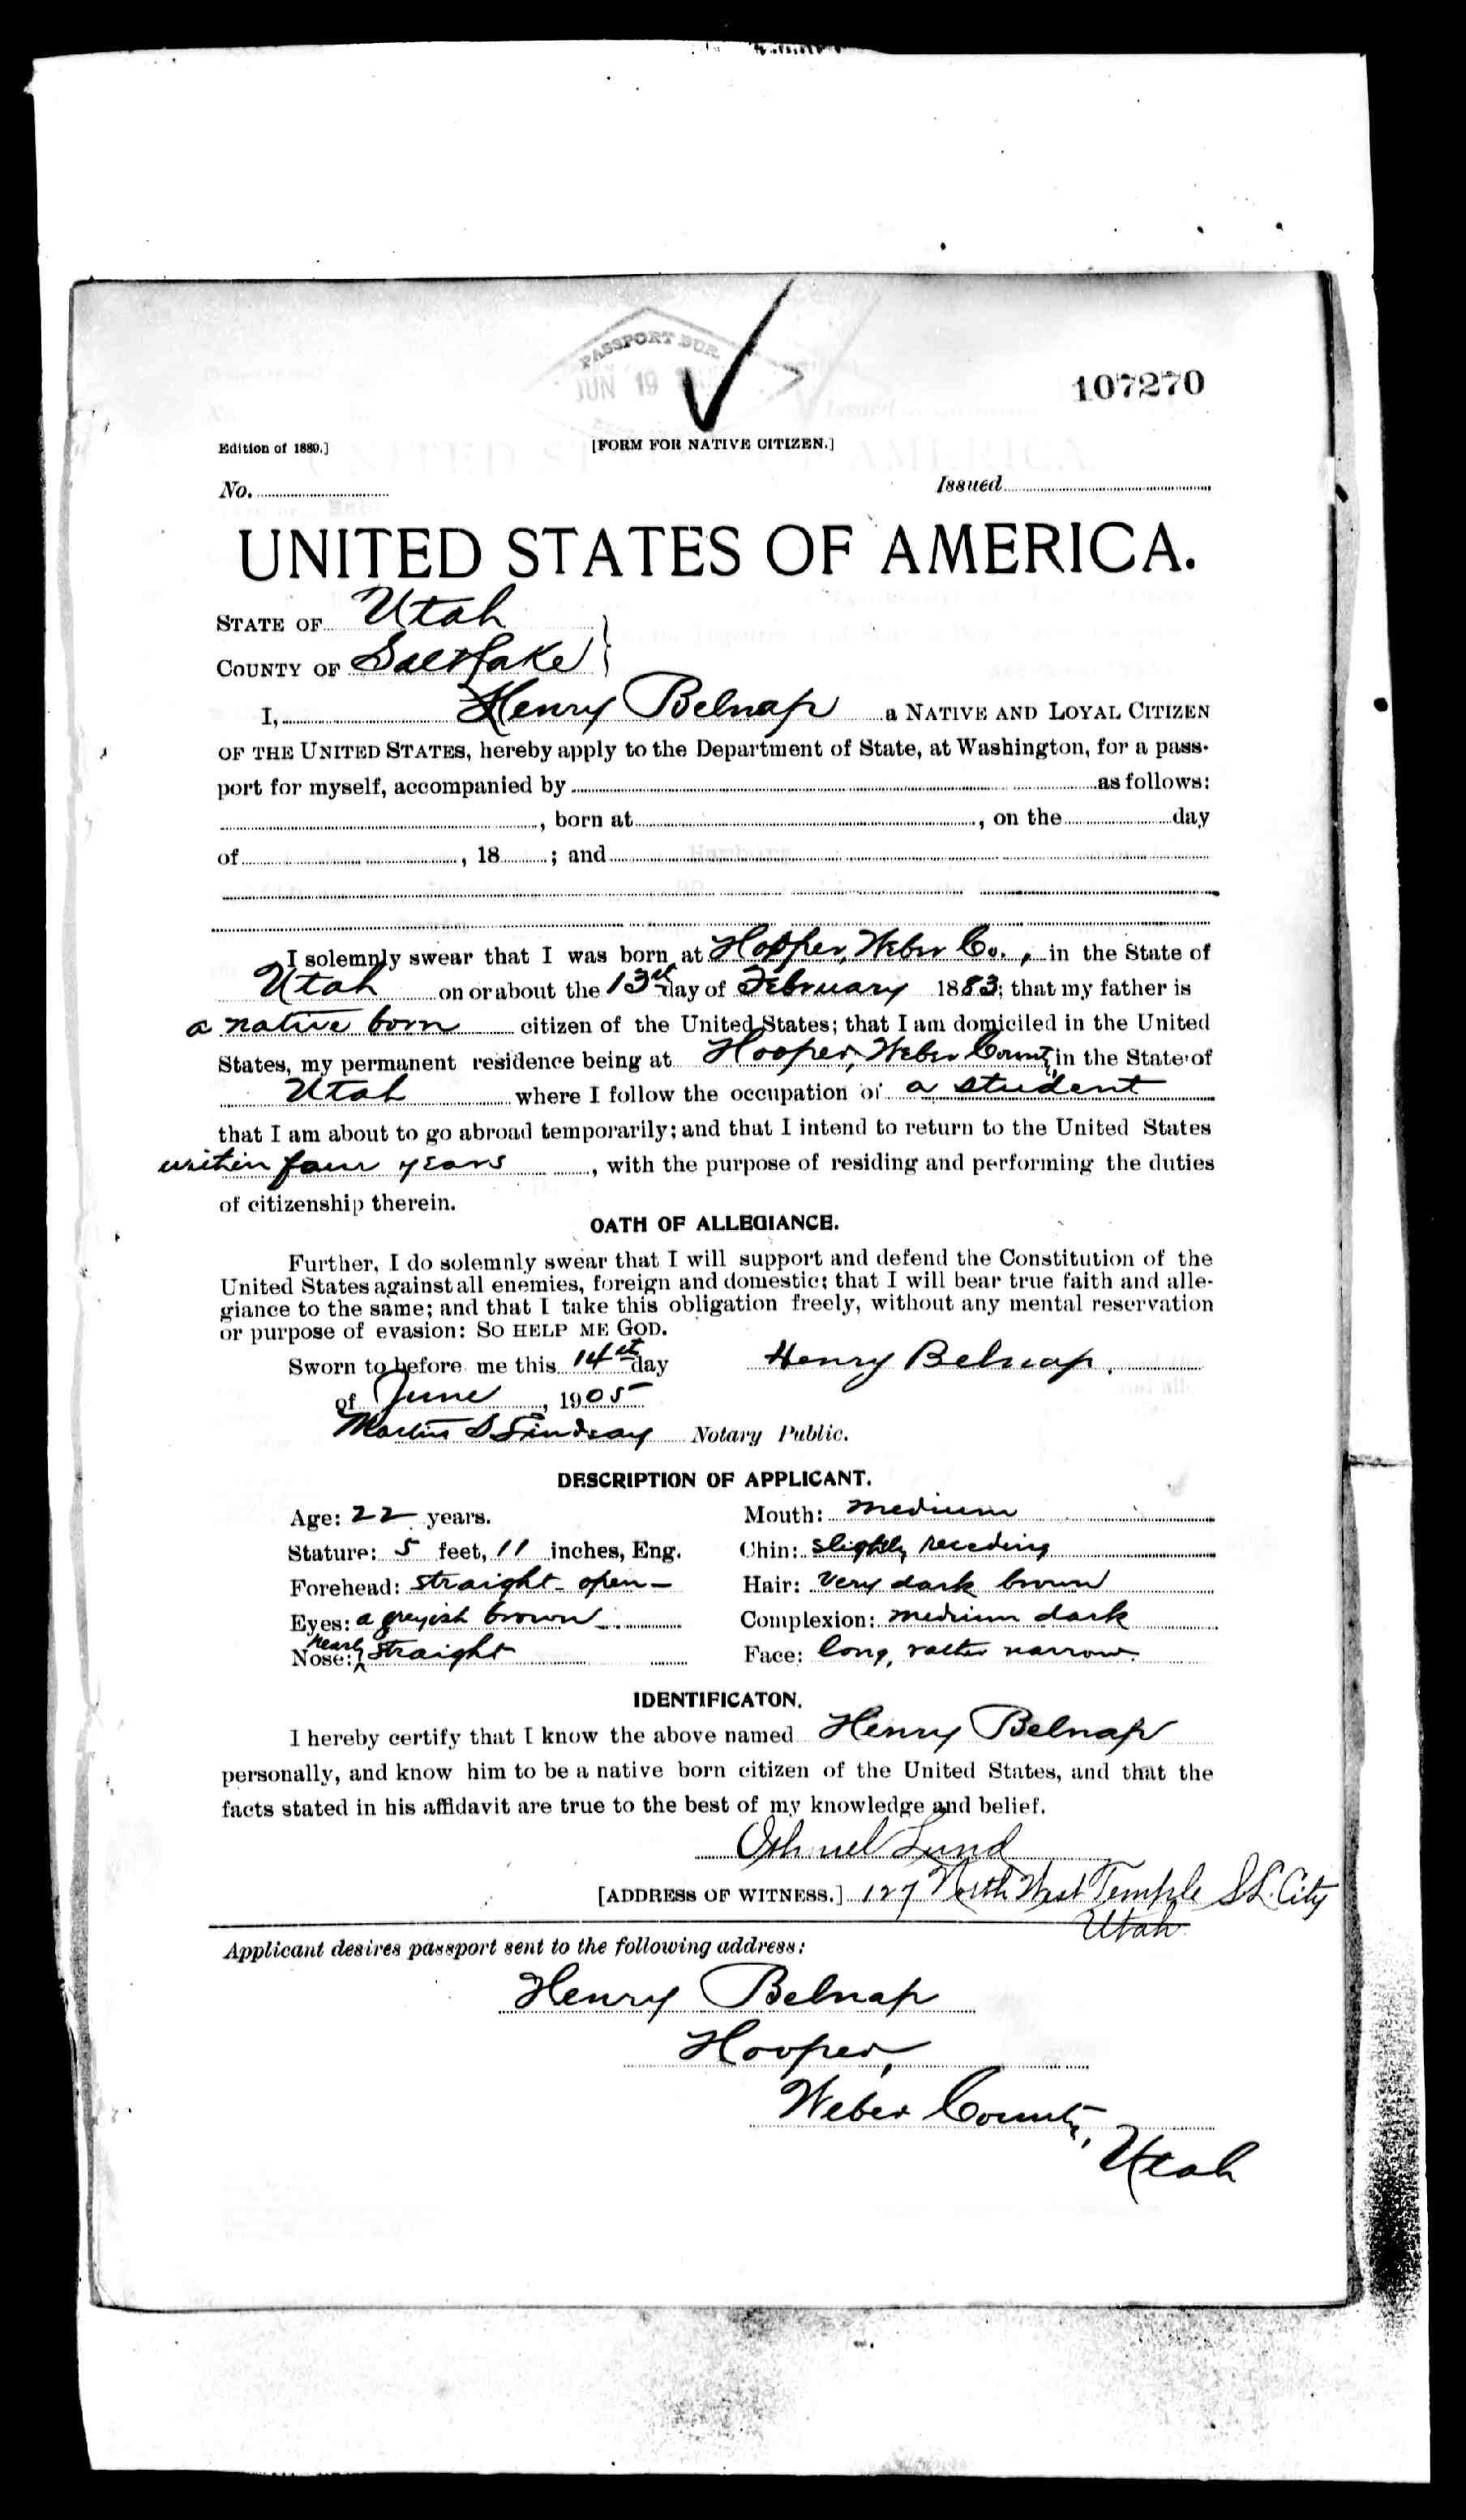 PASSPORT BUR
JUN 19
107270
Edition of 1889.]
[FORM FOR NATIVE CITIZEN.]
No.
Issued
UNITED STATES OF AMERICA.
STATE OF Utah
COUNTY OF Salt Lake
I, Henry Belnap a NATIVE AND LOYAL CITIZEN
OF THE UNITED STATES, hereby apply to the Department of State, at Washington, for a pass-
port for myself, accompanied by as follows:
, born at , on the day
of , 18 ; and
I solemnly swear that I was born at Hooper, Weber Co., in the State of
Utah on or about the 13th day of February 1883; that my father is
a native born citizen of the United States; that I am domiciled in the United
States, my permanent residence being at Hooper, Weber County in the State of
Utah where I follow the occupation of a student
that I am about to go abroad temporarily; and that I intend to return to the United States
within four years, with the purpose of residing and performing the duties
of citizenship therein.
OATH OF ALLEGIANCE.
Further, I do solemnly swear that I will support and defend the Constitution of the
United States against all enemies, foreign and domestic; that I will bear true faith and alle-
giance to the same; and that I take this obligation freely, without any mental reservation
or purpose of evasion: SO HELP ME GOD.
Sworn to before me this 14th day Henry Belnap.
of June, 1905
Martin S Lindsay Notary Public.
DESCRIPTION OF APPLICANT.
Age: 22 years. Mouth: medium
Stature: 5 feet, 11 inches, Eng. Chin: slightly receding
Forehead: straight - open - Hair: very dark brown
Eyes: a greyish brown Complexion: medium dark
Nose: nearly straight Face: long, rather narrow.
IDENTIFICATON.
I hereby certify that I know the above named Henry Belnap
personally, and know him to be a native born citizen of the United States, and that the
facts stated in his affidavit are true to the best of my knowledge and belief.
Lund
[ADDRESS OF WITNESS.] 127 North West Temple S.L. City
Utah
Applicant desires passport sent to the following address:
Henry Belnap
Hooper,
Weber County,
Utah